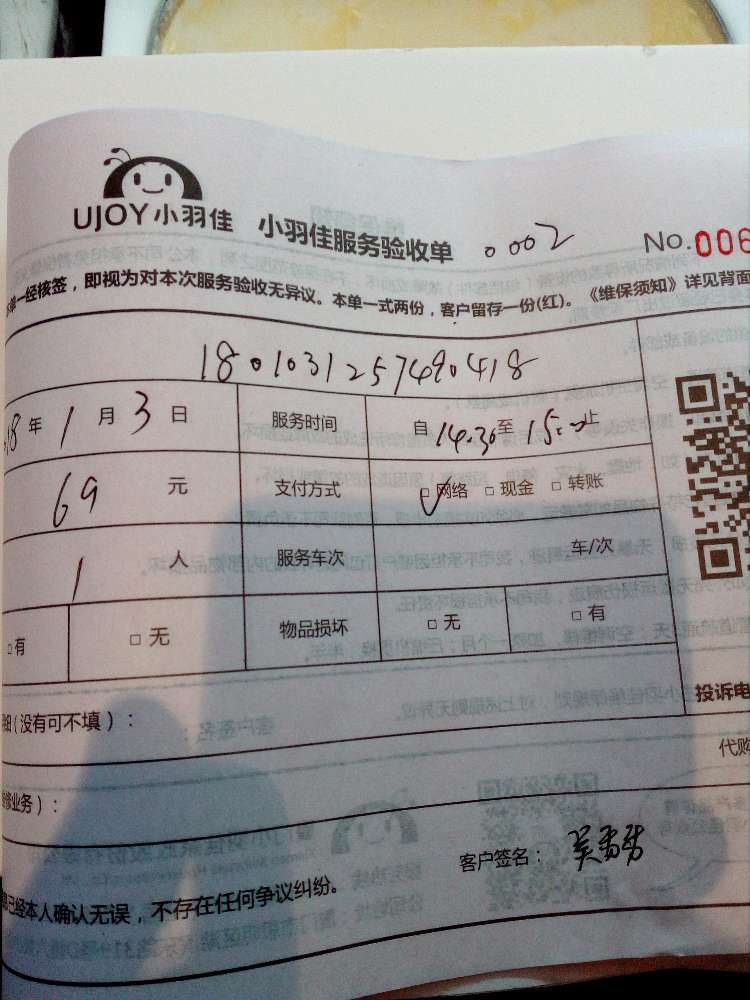 UJOY小羽佳 小羽佳服务验收单 0002 No.006
单一经核签，即视为对本次服务验收无异议。本单一式两份，客户留存一份(红)。《维保须知》详见背面
1801031257490418
18年1月3日 服务时间 自14.30至15:00止
69元 支付方式 □网络 □现金 □转账
1人 服务车次 车/次
□有 □无 物品损坏 □无 □有
(没有可不填)： 投诉电
代购
修业务)：
客户签名：吴
已经本人确认无误，不存在任何争议纠纷。